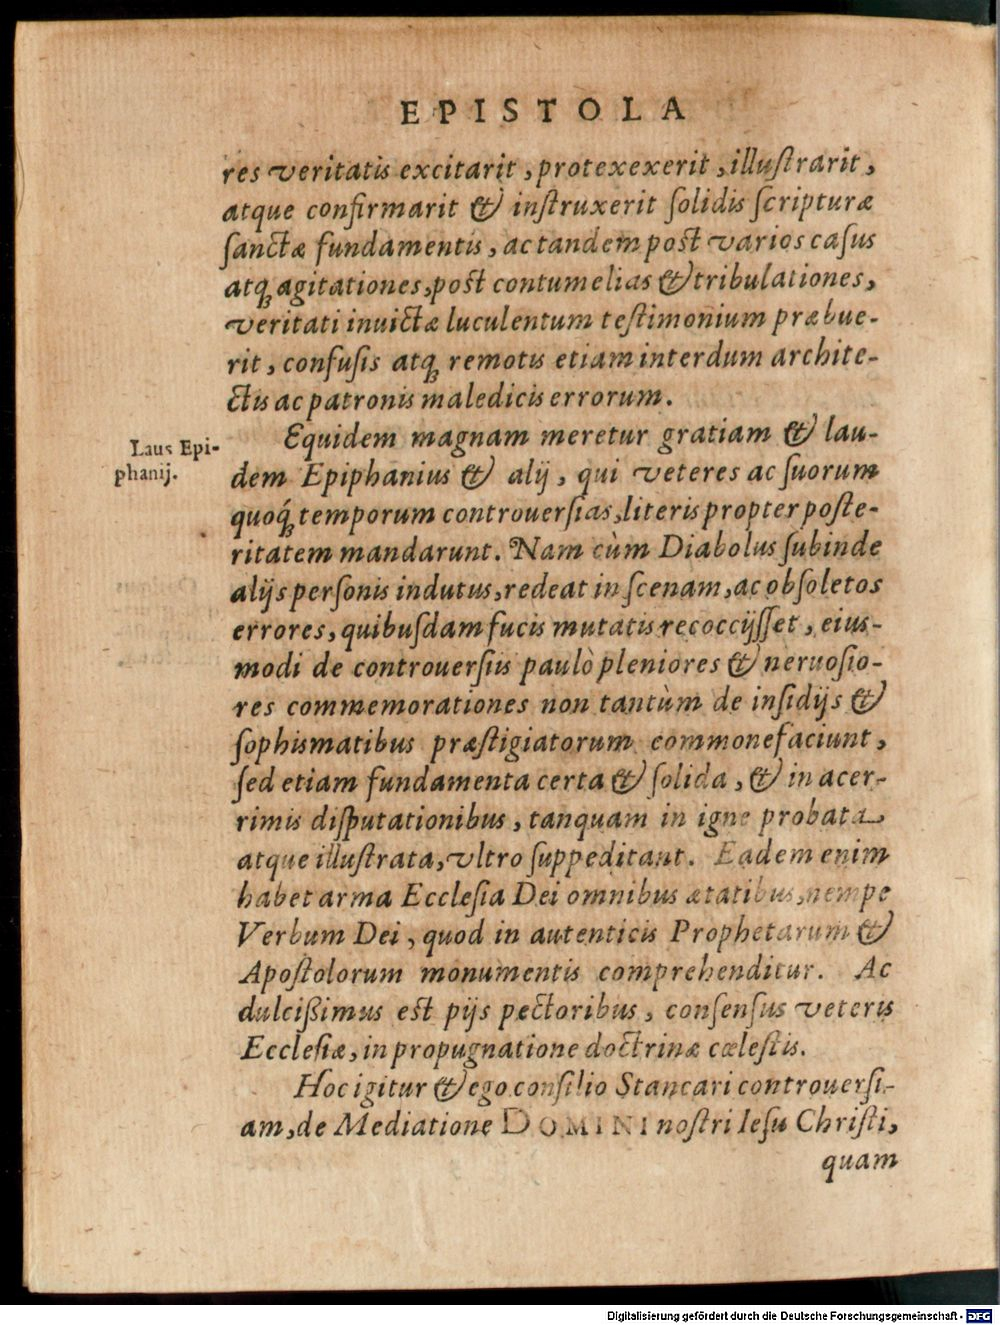 EPISTOLA
res veritatis excitarit, protexexerit, illuſtrarit,
atque confirmarit & inſtruxerit ſolidis ſcripturæ
ſanctæ fundamentis, ac tandem poſt varios caſus
atq; agitationes, poſt contumelias & tribulationes,
veritati inuictæ luculentum teſtimonium præbue-
rit, confuſis atq; remotis etiam interdum archite-
ctis ac patronis maledicis errorum.
Laus Epi-
phanij.
Equidem magnam meretur gratiam & lau-
dem Epiphanius & alij, qui veteres ac ſuorum
quoq́; temporum controuerſias, literis propter poſte-
ritatem mandarunt. Nam cùm Diabolus ſubinde
alijs perſonis indutus, redeat in ſcenam, ac obſoletos
errores, quibuſdam fucis mutatis recoccijſſet, eius-
modi de controuerſiis paulò pleniores & neruoſio-
res commemorationes non tantùm de inſidijs &
ſophismatibus præſtigiatorum commonefaciunt,
ſed etiam fundamenta certa & ſolida, & in acer-
rimis diſputationibus, tanquam in igne probata
atque illuſtrata, vltro ſuppeditant. Eadem enim
habet arma Eccleſia Dei omnibus ætatibus, nempe
Verbum Dei, quod in autenticis Prophetarum &
Apoſtolorum monumentis comprehenditur. Ac
dulcißimus eſt pijs pectoribus, conſenſus veteris
Eccleſiæ, in propugnatione doctrinæ cœleſtis.
Hoc igitur & ego conſilio Stancari controuerſi-
am, de Mediatione DOMINI noſtri Ieſu Chriſti,
quam
Digitalisierung gefördert durch die Deutsche Forschungsgemeinschaft - DFG